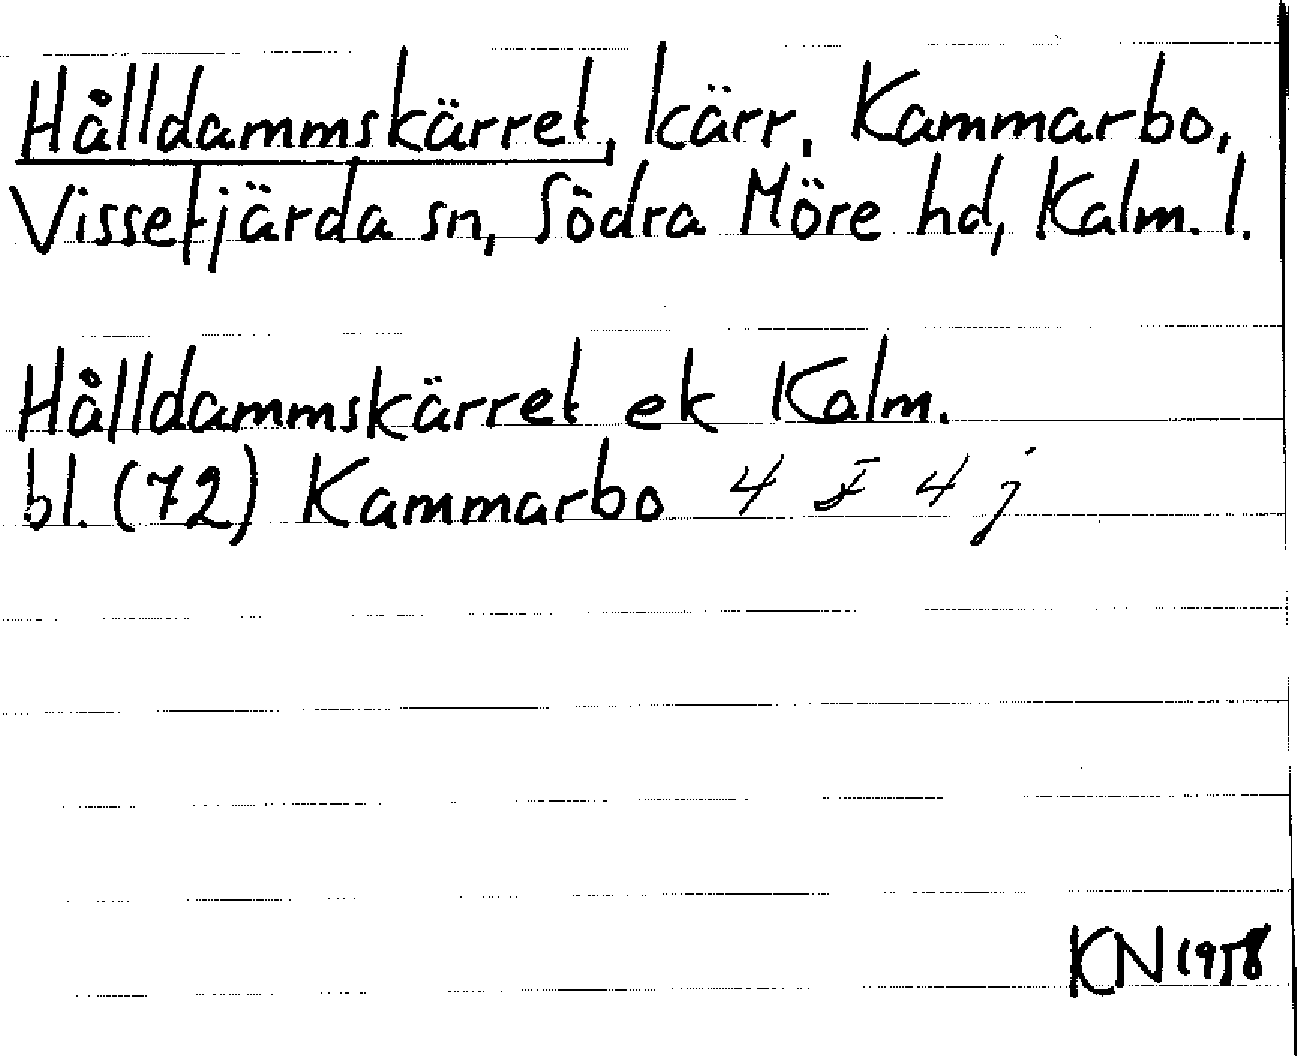 Hålldammskärret, kärr, Kammarbo,
Vissefjärda sn, Södra Möre hd, Kalm. l.
Hålldammskärret ek Kalm.
bl. (72) Kammarbo 4 F 4 j
KN 1958